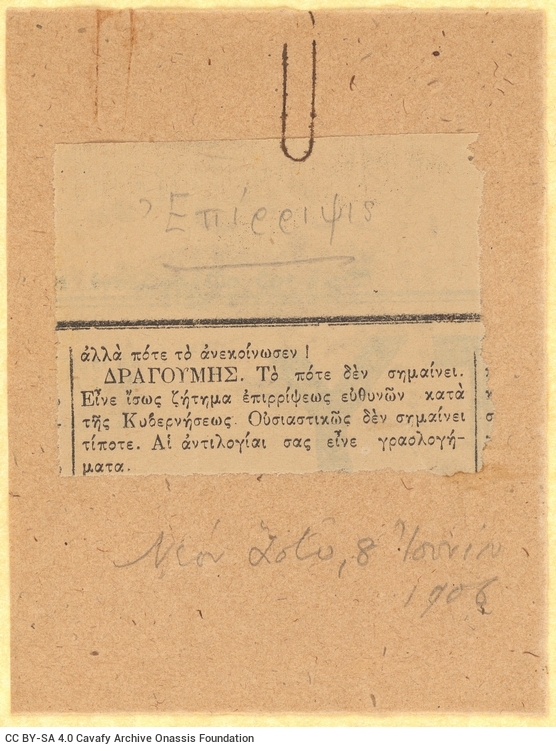 Ἐπίρριψις
ἀλλὰ πότε τὸ ἀνεκοίνωσεν !
ΔΡΑΓΟΥΜΗΣ. Τὸ πότε δὲν σημαίνει.
Εἶνε ἴσως ζήτημα ἐπιρρίψεως εὐθυνῶν κατὰ
τῆς Κυβερνήσεως. Οὐσιαστικῶς δὲν σημαίνει
τίποτε. Αἱ ἀντιλογίαι σας εἶνε γραολογή-
ματα.
Νέον Ἄστυ, 8 Ἰουνίου
1906
CC BY-SA 4.0 Cavafy Archive Onassis Foundation